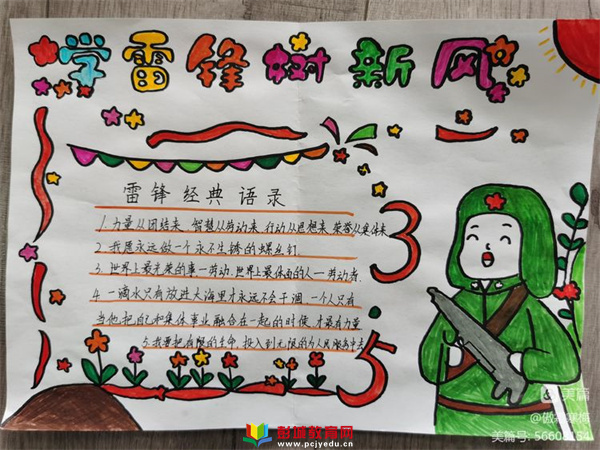 学雷锋树新风
雷锋经典语录
1.力量从团结来,智慧从劳动来,行动从思想来,荣誉从集体来
2.我愿永远做一个永不生锈的螺丝钉.
3.世界上最光荣的事—劳动.世界上最体面的人—劳动者.
4.一滴水只有放进大海里才永远不会干涸,一个人只有
当他把自己和集体事业融合在一起的时候才最有力量
5.我要把有限的生命,投入到无限的为人民服务中去
3
5
美篇
美篇号:
彭城教育网
www.pcjyedu.cn